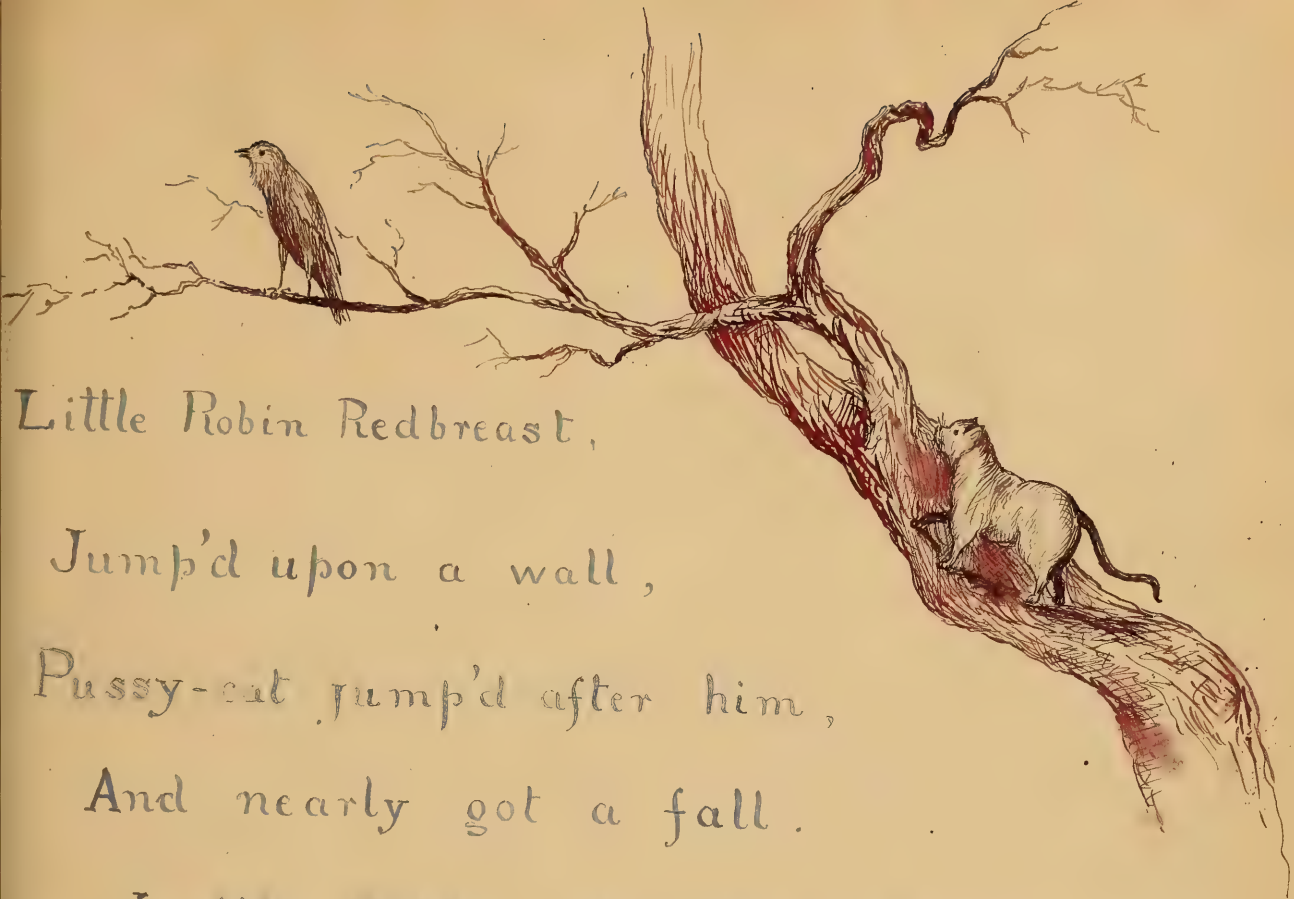 Little Robin Redbreast,
Jump'd upon a wall,
Pussy-cat jump'd after him,
And nearly got a fall.